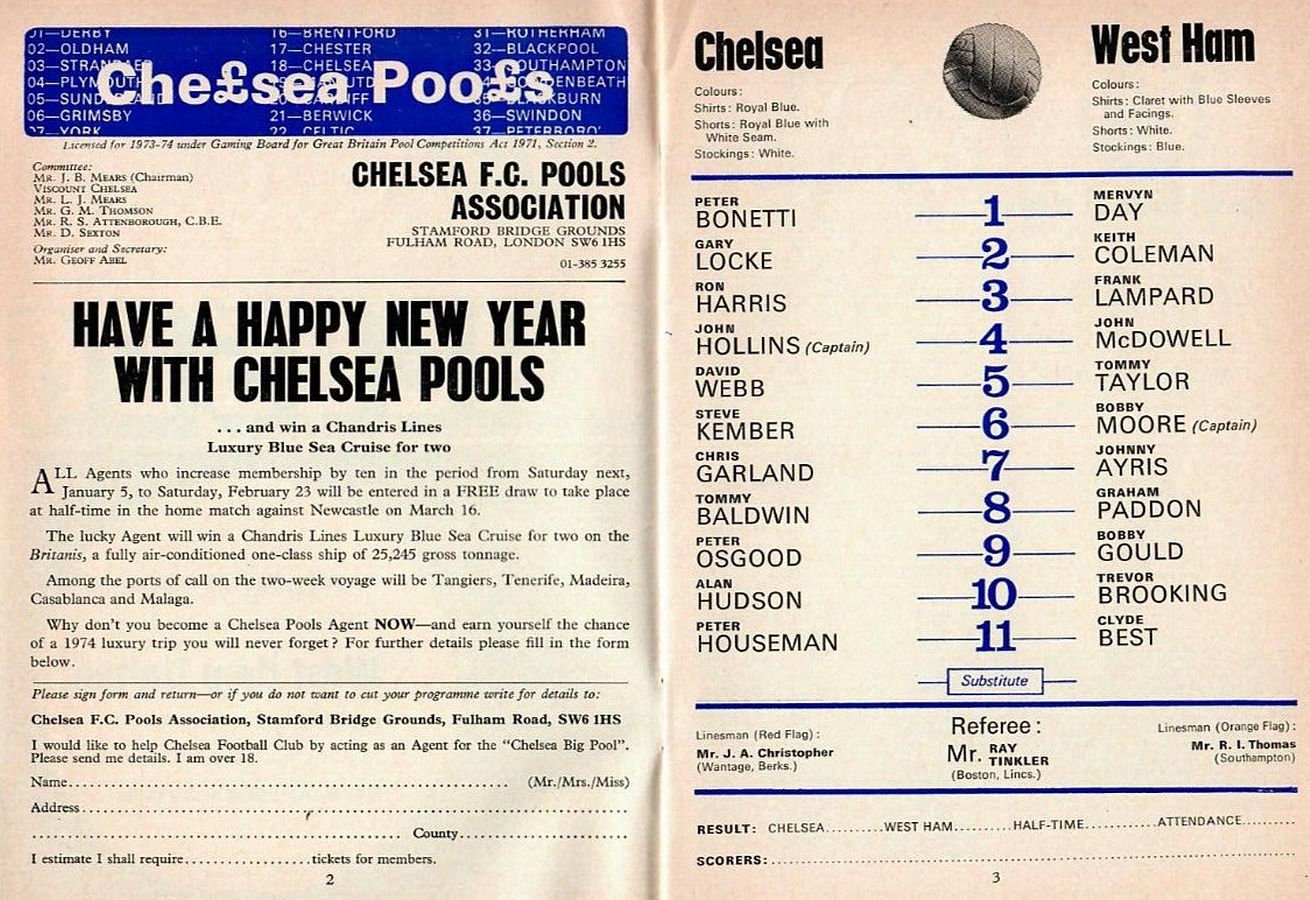 01—DERBY 16—BRENTFORD 31—ROTHERHAM
02—OLDHAM 17—CHESTER 32—BLACKPOOL
03—STRANRAER 18—CHELSEA 33—SOUTHAMPTON
04—PLYMOUTH
05—SUNDERLAND
Che£sea Poo£s
06—GRIMSBY 21—BERWICK 36—SWINDON
07—YORK 22—CELTIC 37—PETERBORO'
Licensed for 1973-74 under Gaming Board for Great Britain Pool Competitions Act 1971, Section 2.
Committee:
MR. J. B. MEARS (Chairman)
VISCOUNT CHELSEA
MR. L. J. MEARS
MR. G. M. THOMSON
MR. R. S. ATTENBOROUGH, C.B.E.
MR. D. SEXTON
Organiser and Secretary:
MR. GEOFF ABEL
CHELSEA F.C. POOLS
ASSOCIATION
STAMFORD BRIDGE GROUNDS
FULHAM ROAD, LONDON SW6 1HS
01-385 3255
HAVE A HAPPY NEW YEAR
WITH CHELSEA POOLS
. . . and win a Chandris Lines
Luxury Blue Sea Cruise for two
ALL Agents who increase membership by ten in the period from Saturday next,
January 5, to Saturday, February 23 will be entered in a FREE draw to take place
at half-time in the home match against Newcastle on March 16.
The lucky Agent will win a Chandris Lines Luxury Blue Sea Cruise for two on the
Britanis, a fully air-conditioned one-class ship of 25,245 gross tonnage.
Among the ports of call on the two-week voyage will be Tangiers, Tenerife, Madeira,
Casablanca and Malaga.
Why don't you become a Chelsea Pools Agent NOW—and earn yourself the chance
of a 1974 luxury trip you will never forget? For further details please fill in the form
below.
Please sign form and return—or if you do not want to cut your programme write for details to:
Chelsea F.C. Pools Association, Stamford Bridge Grounds, Fulham Road, SW6 1HS
I would like to help Chelsea Football Club by acting as an Agent for the "Chelsea Big Pool".
Please send me details. I am over 18.
Name.......................................................... (Mr./Mrs./Miss)
Address..........................................................................
.......................................................... County......................
I estimate I shall require..................tickets for members.
2
Chelsea
Colours:
Shirts: Royal Blue.
Shorts: Royal Blue with
White Seam.
Stockings: White.
West Ham
Colours:
Shirts: Claret with Blue Sleeves
and Facings.
Shorts: White.
Stockings: Blue.
PETER BONETTI 1 MERVYN DAY
GARY LOCKE 2 KEITH COLEMAN
RON HARRIS 3 FRANK LAMPARD
JOHN HOLLINS (Captain) 4 JOHN McDOWELL
DAVID WEBB 5 TOMMY TAYLOR
STEVE KEMBER 6 BOBBY MOORE (Captain)
CHRIS GARLAND 7 JOHNNY AYRIS
TOMMY BALDWIN 8 GRAHAM PADDON
PETER OSGOOD 9 BOBBY GOULD
ALAN HUDSON 10 TREVOR BROOKING
PETER HOUSEMAN 11 CLYDE BEST
Substitute
Linesman (Red Flag):
Mr. J. A. Christopher
(Wantage, Berks.)
Referee:
Mr. RAY TINKLER
(Boston, Lincs.)
Linesman (Orange Flag):
Mr. R. I. Thomas
(Southampton)
RESULT: CHELSEA..........WEST HAM..........HALF-TIME............ATTENDANCE.........
SCORERS:..........................................................................
3